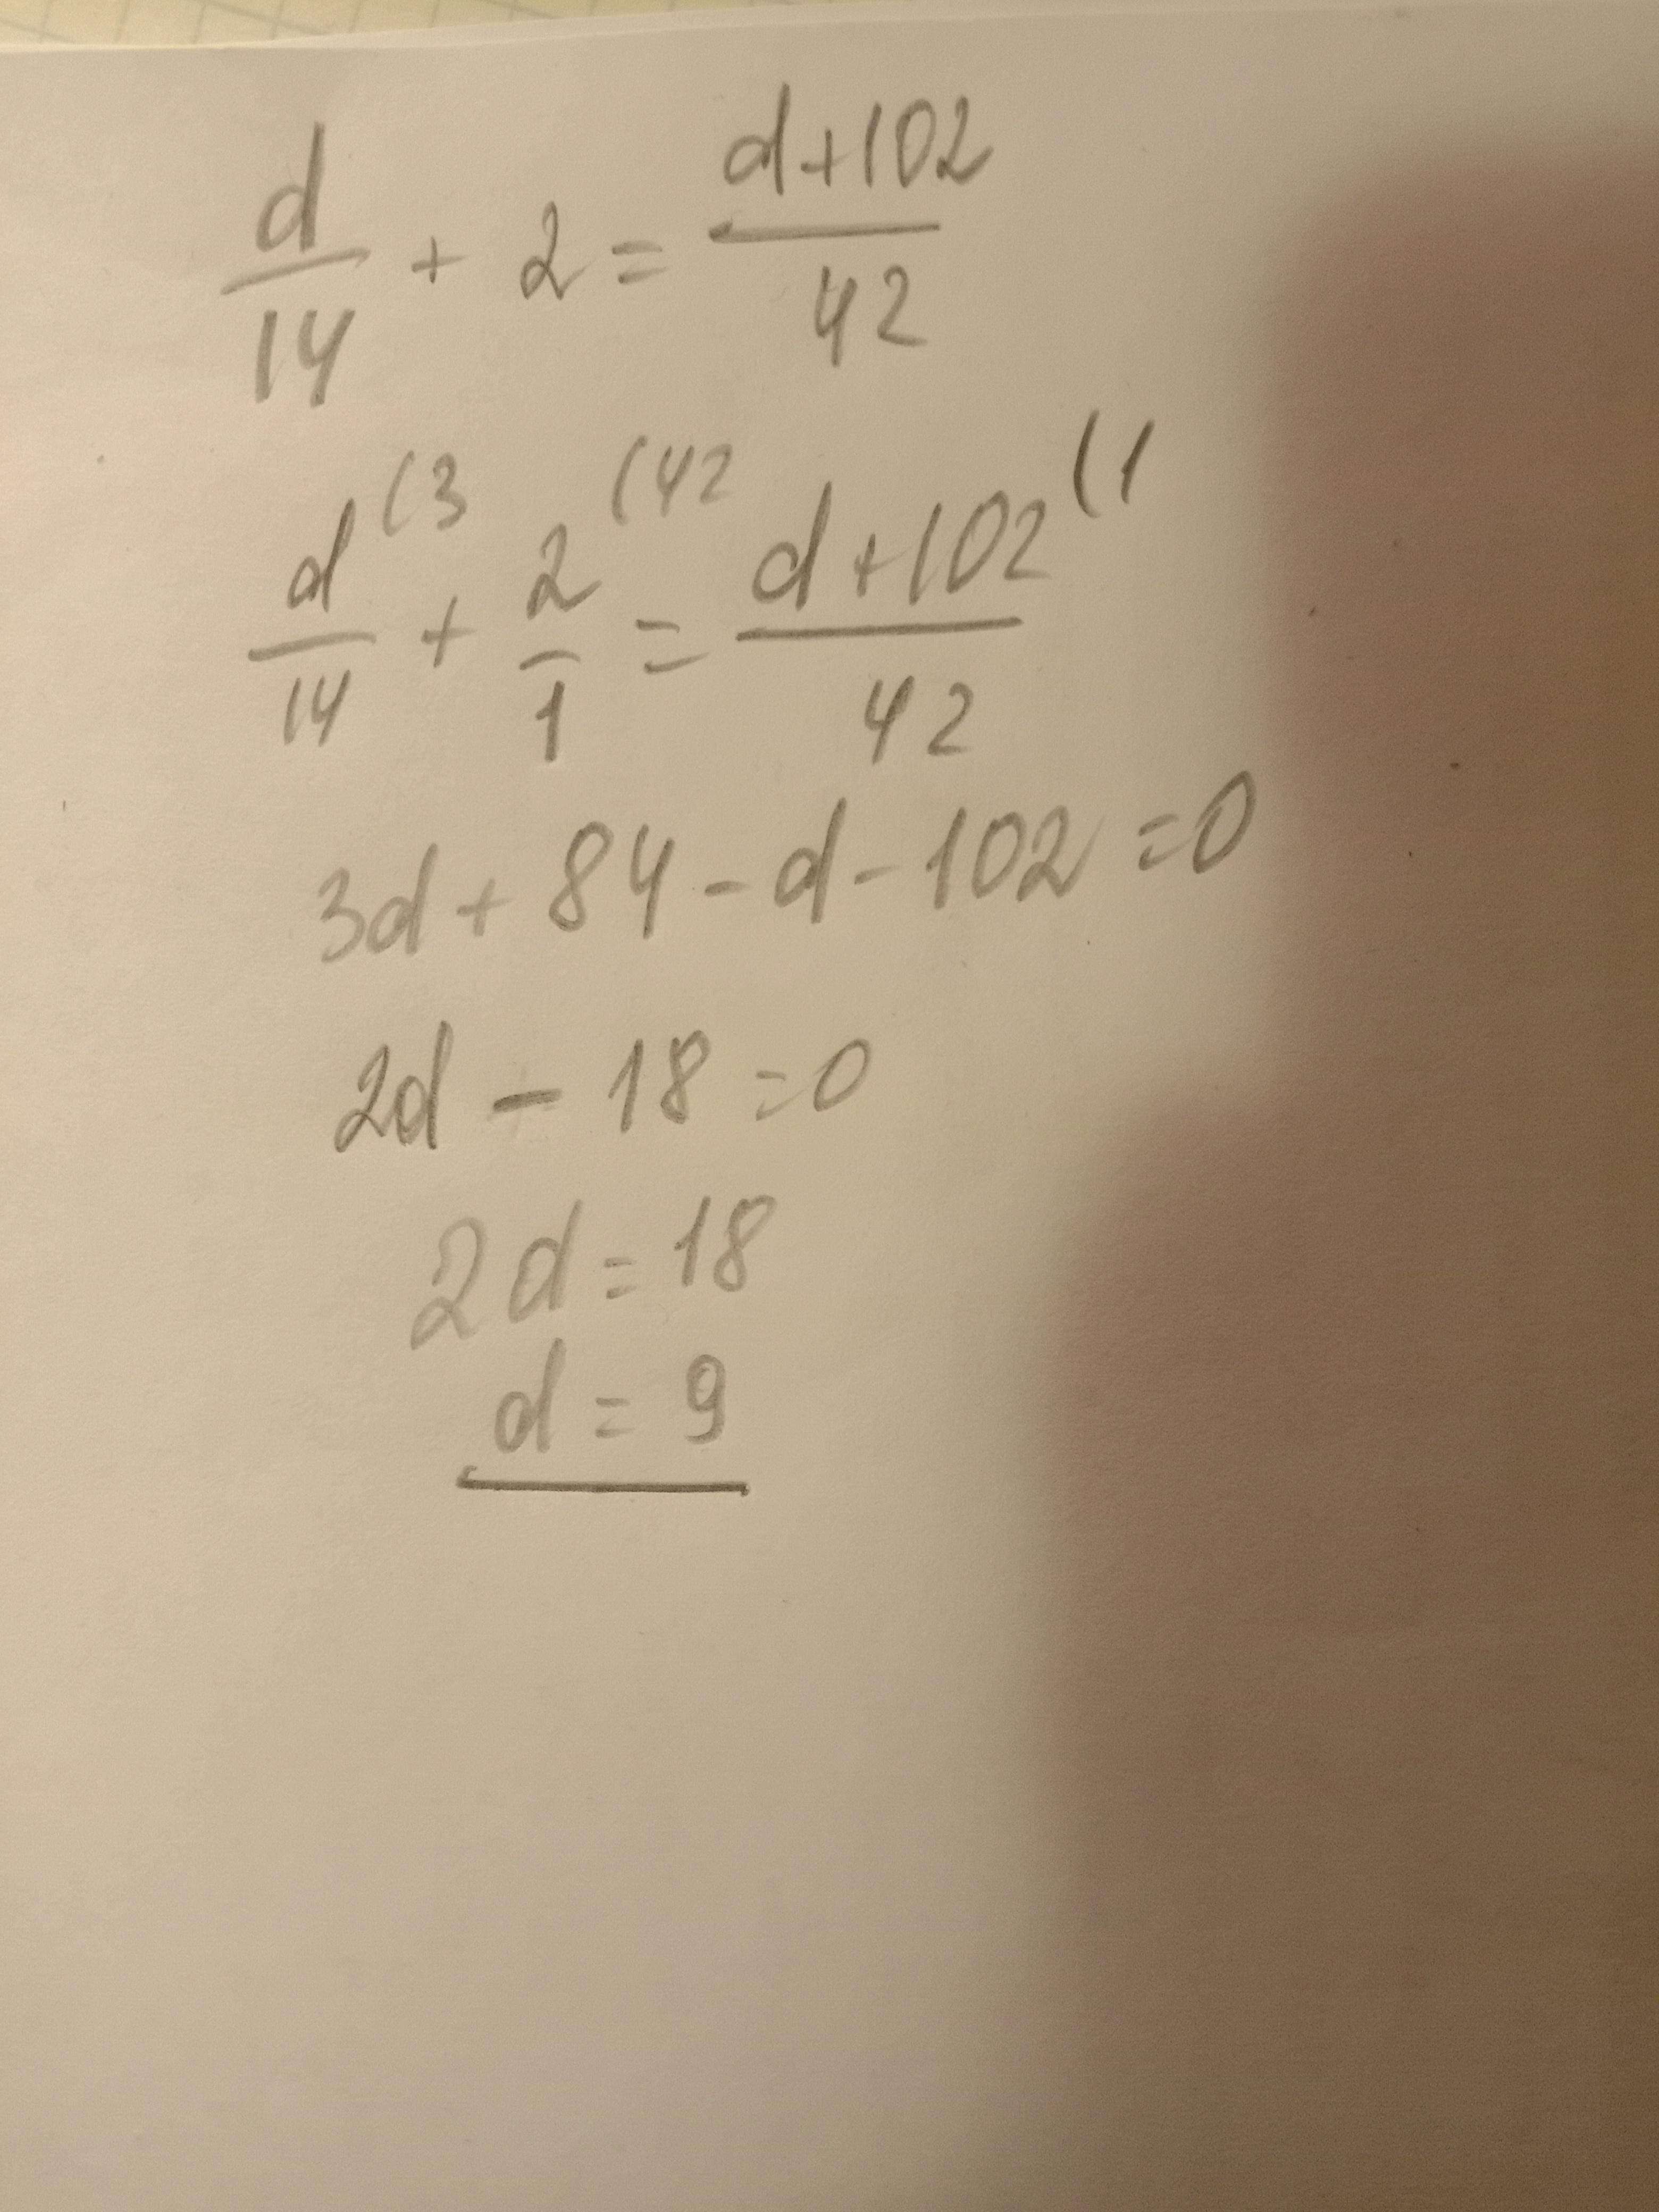 d/14 + 2 = d+102/42
d/14 (3 + 2/1 (42 = d+102/42 (1
3d + 84 - d - 102 = 0
2d - 18 = 0
2d = 18
d = 9